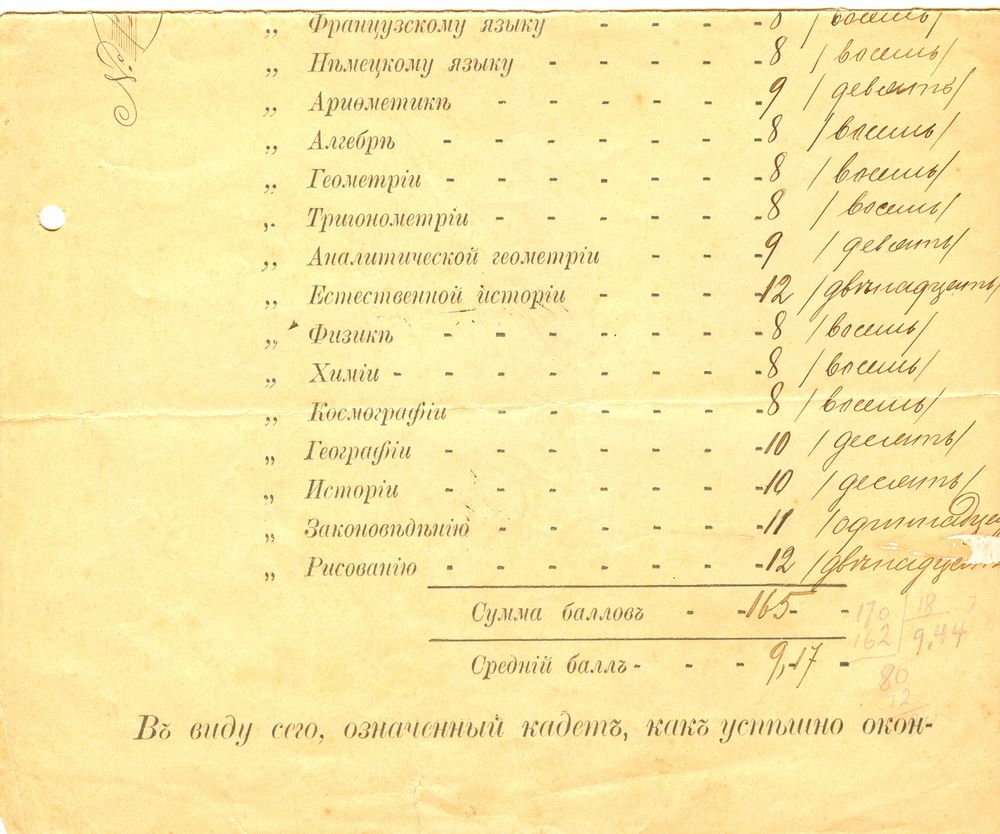 „ Французскому языку - - - - 8 /восемь/
„ Нѣмецкому языку - - - - - 8 /восемь/
„ Ариѳметикѣ - - - - - - 9 /девять/
„ Алгебрѣ - - - - - - - 8 /восемь/
„ Геометріи - - - - - - - 8 /восемь/
„ Тригонометріи - - - - - - 8 /восемь/
„ Аналитической геометріи - - - 9 /девять/
„ Естественной исторіи - - - - 12 /двѣнадцать/
„ Физикѣ - - - - - - - 8 /восемь/
„ Химіи - - - - - - - - 8 /восемь/
„ Космографіи - - - - - - 8 /восемь/
„ Географіи - - - - - - - 10 /десять/
„ Исторіи - - - - - - - 10 /десять/
„ Законовѣдѣнію - - - - - - 11 /одиннадца
„ Рисованію - - - - - - - 12 /двѣнадцать
Сумма балловъ - - 165 -
170 | 18
162 | 9,44
Средній баллъ - - - - 9,17 -
80
72
Въ виду сего, означенный кадетъ, какъ успѣшно окон-